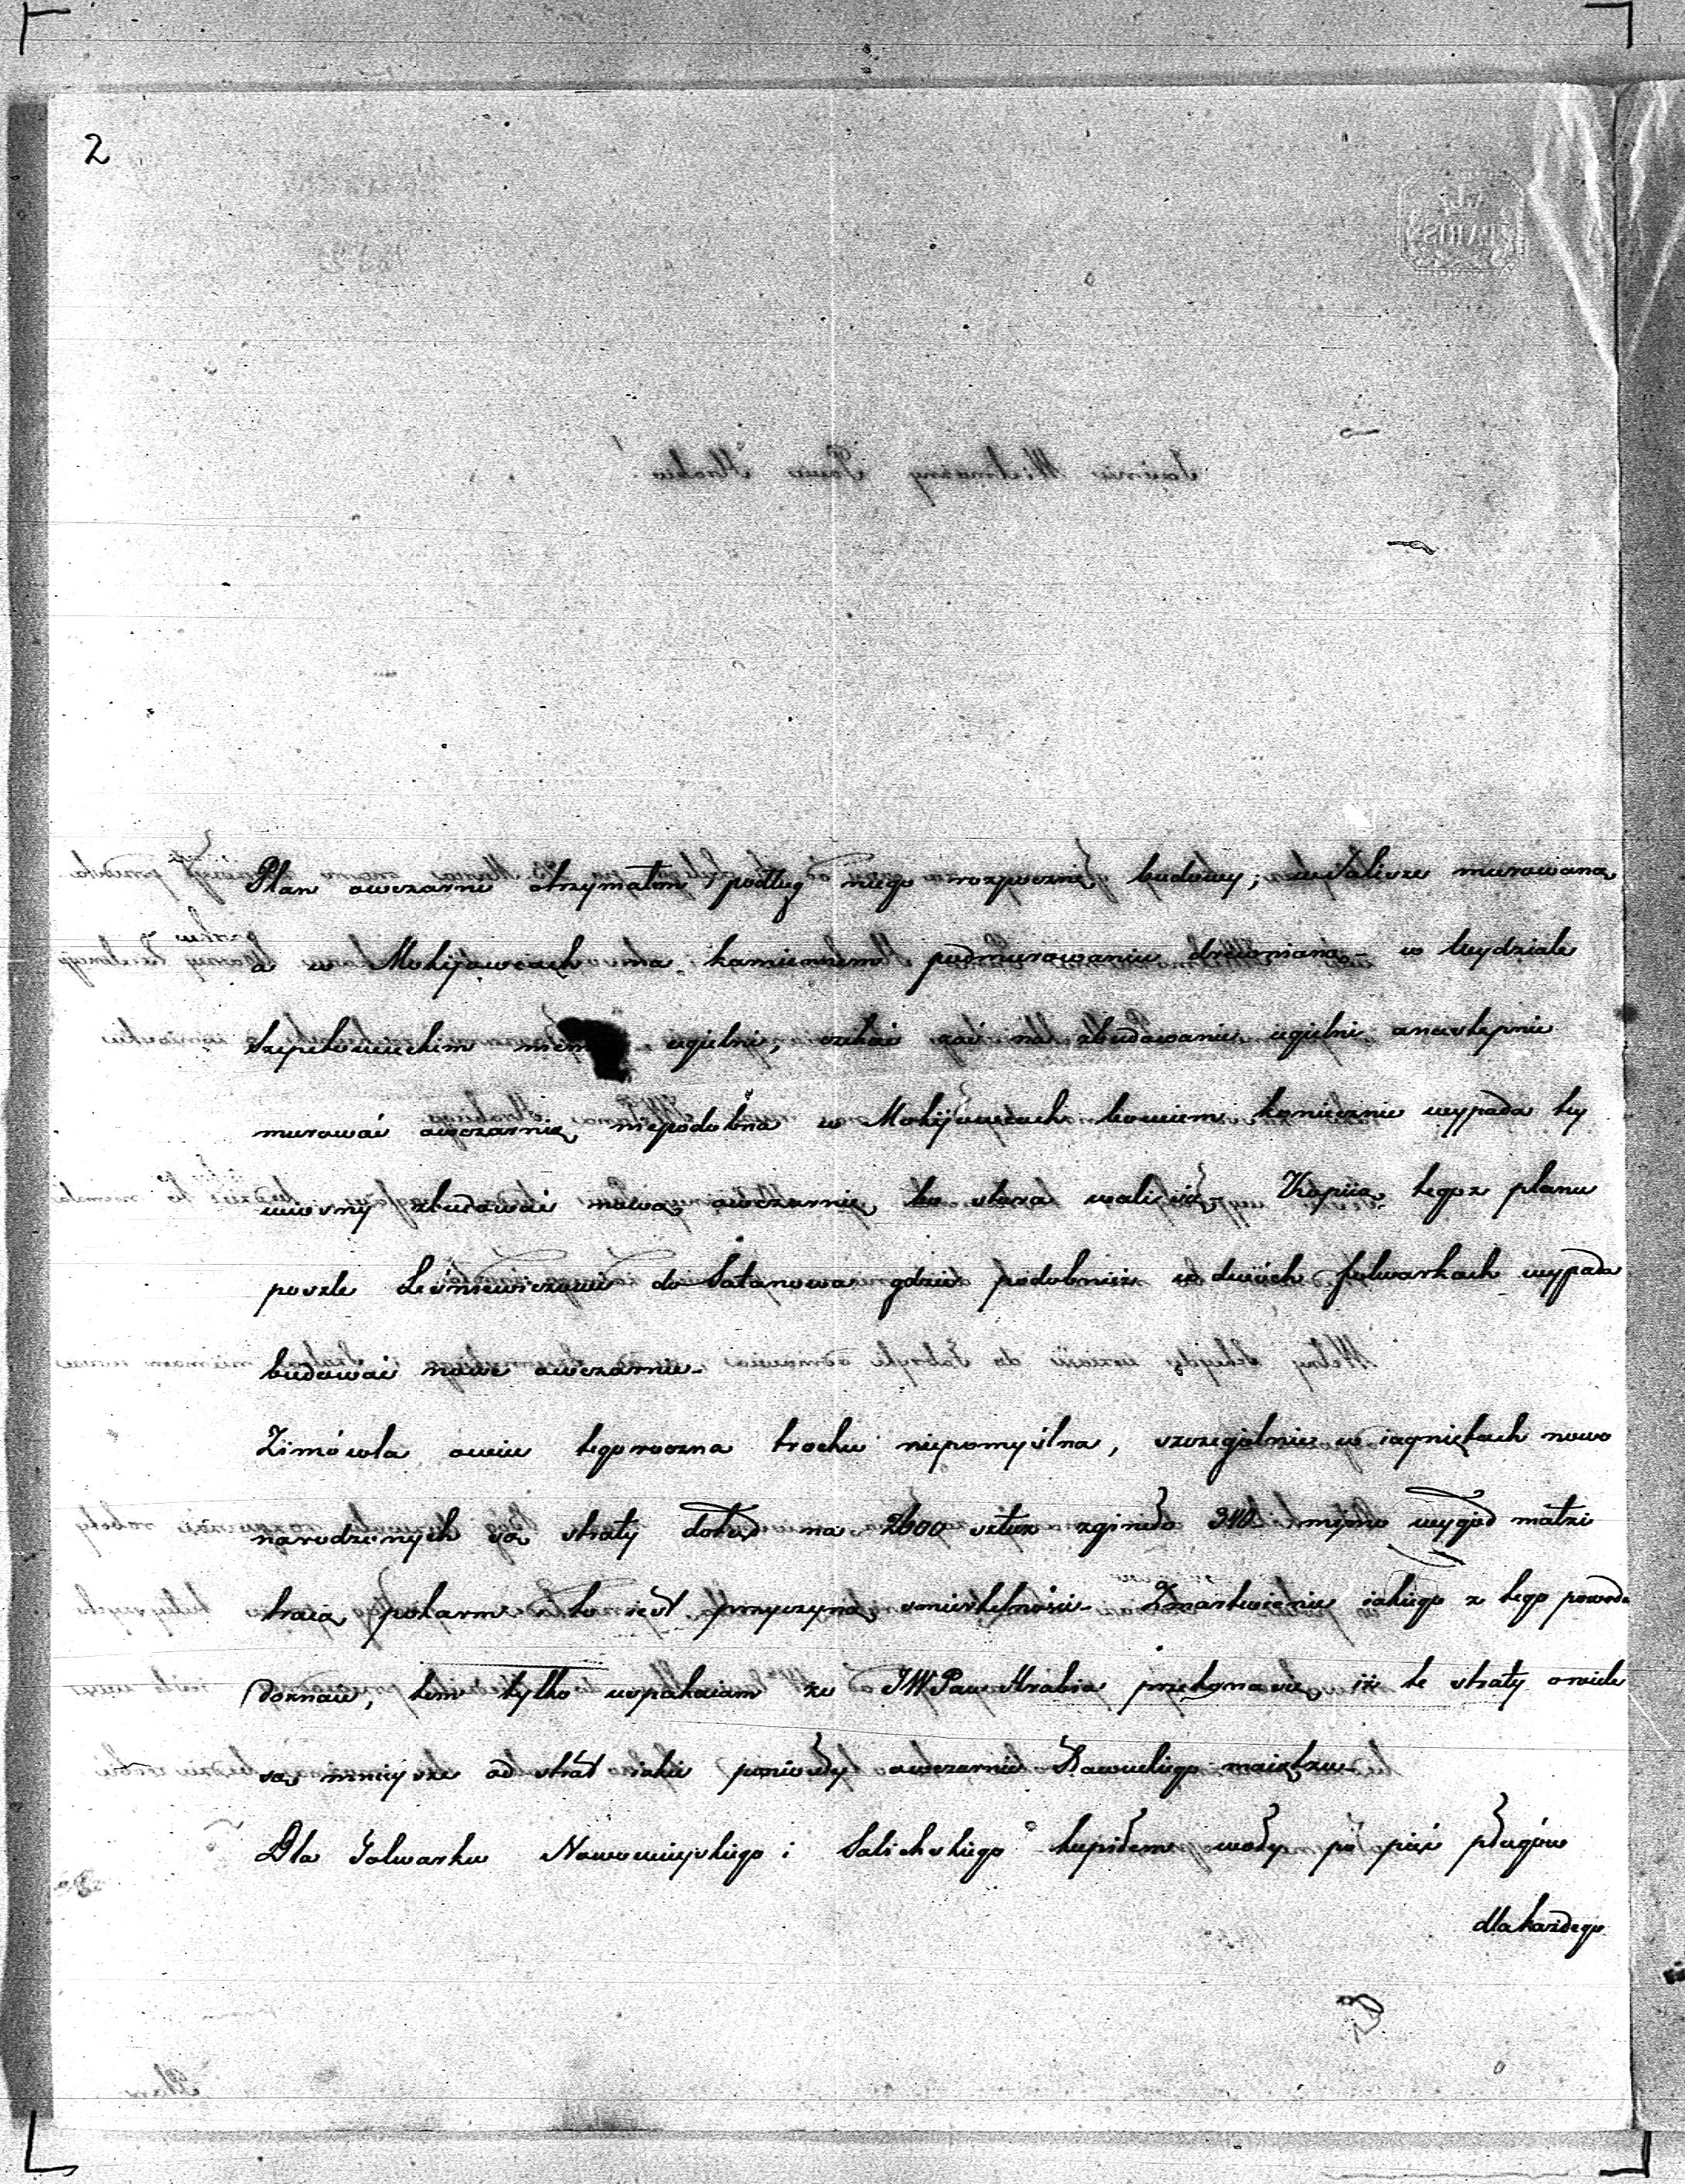 2
Plan owczarni otrzymałem podług niego rozpocznę budowy; w Saliszu murowaną
a w Mokijowcach na kamiennem podmurowaniu drewnianą - w Wydziale
Szepetowieckim niema cegielni, czekać zaś na zbudowanie cegielni anastępnie
murować owczarnię niepodobna w Mokijowcach bowiem koniecznie wypada tey
wiosny zbudować nową owczarnię, bo stara wali się - Kopiię tegoż planu
poszle Leśniewiczowi do Satanowa gdzie podobnież w dwóch folwarkach wypada
budować nowe owczarnie.
Zimówla owiec tegoroczna trochu niepomyślna, szczególniey w iagniętach nowo
narodzonych są straty dotąd na 2600 sztuk zginęło 340 mimo wygód matki
tracą pokarm to iest przyczyną śmiertelności - Zmartwienie iakiego z tego powodu
doznaię, tem tylko uspakaiam że JWPan Hrabia przekona się, iż te straty o wiele
są mnieysze od strat iakie poniosły owczarnie Sławuckiego maiątku -
Dla Folwarku Nowomieyskiego i Salichskiego kupiłem woły po pięć pługów
dla każdego